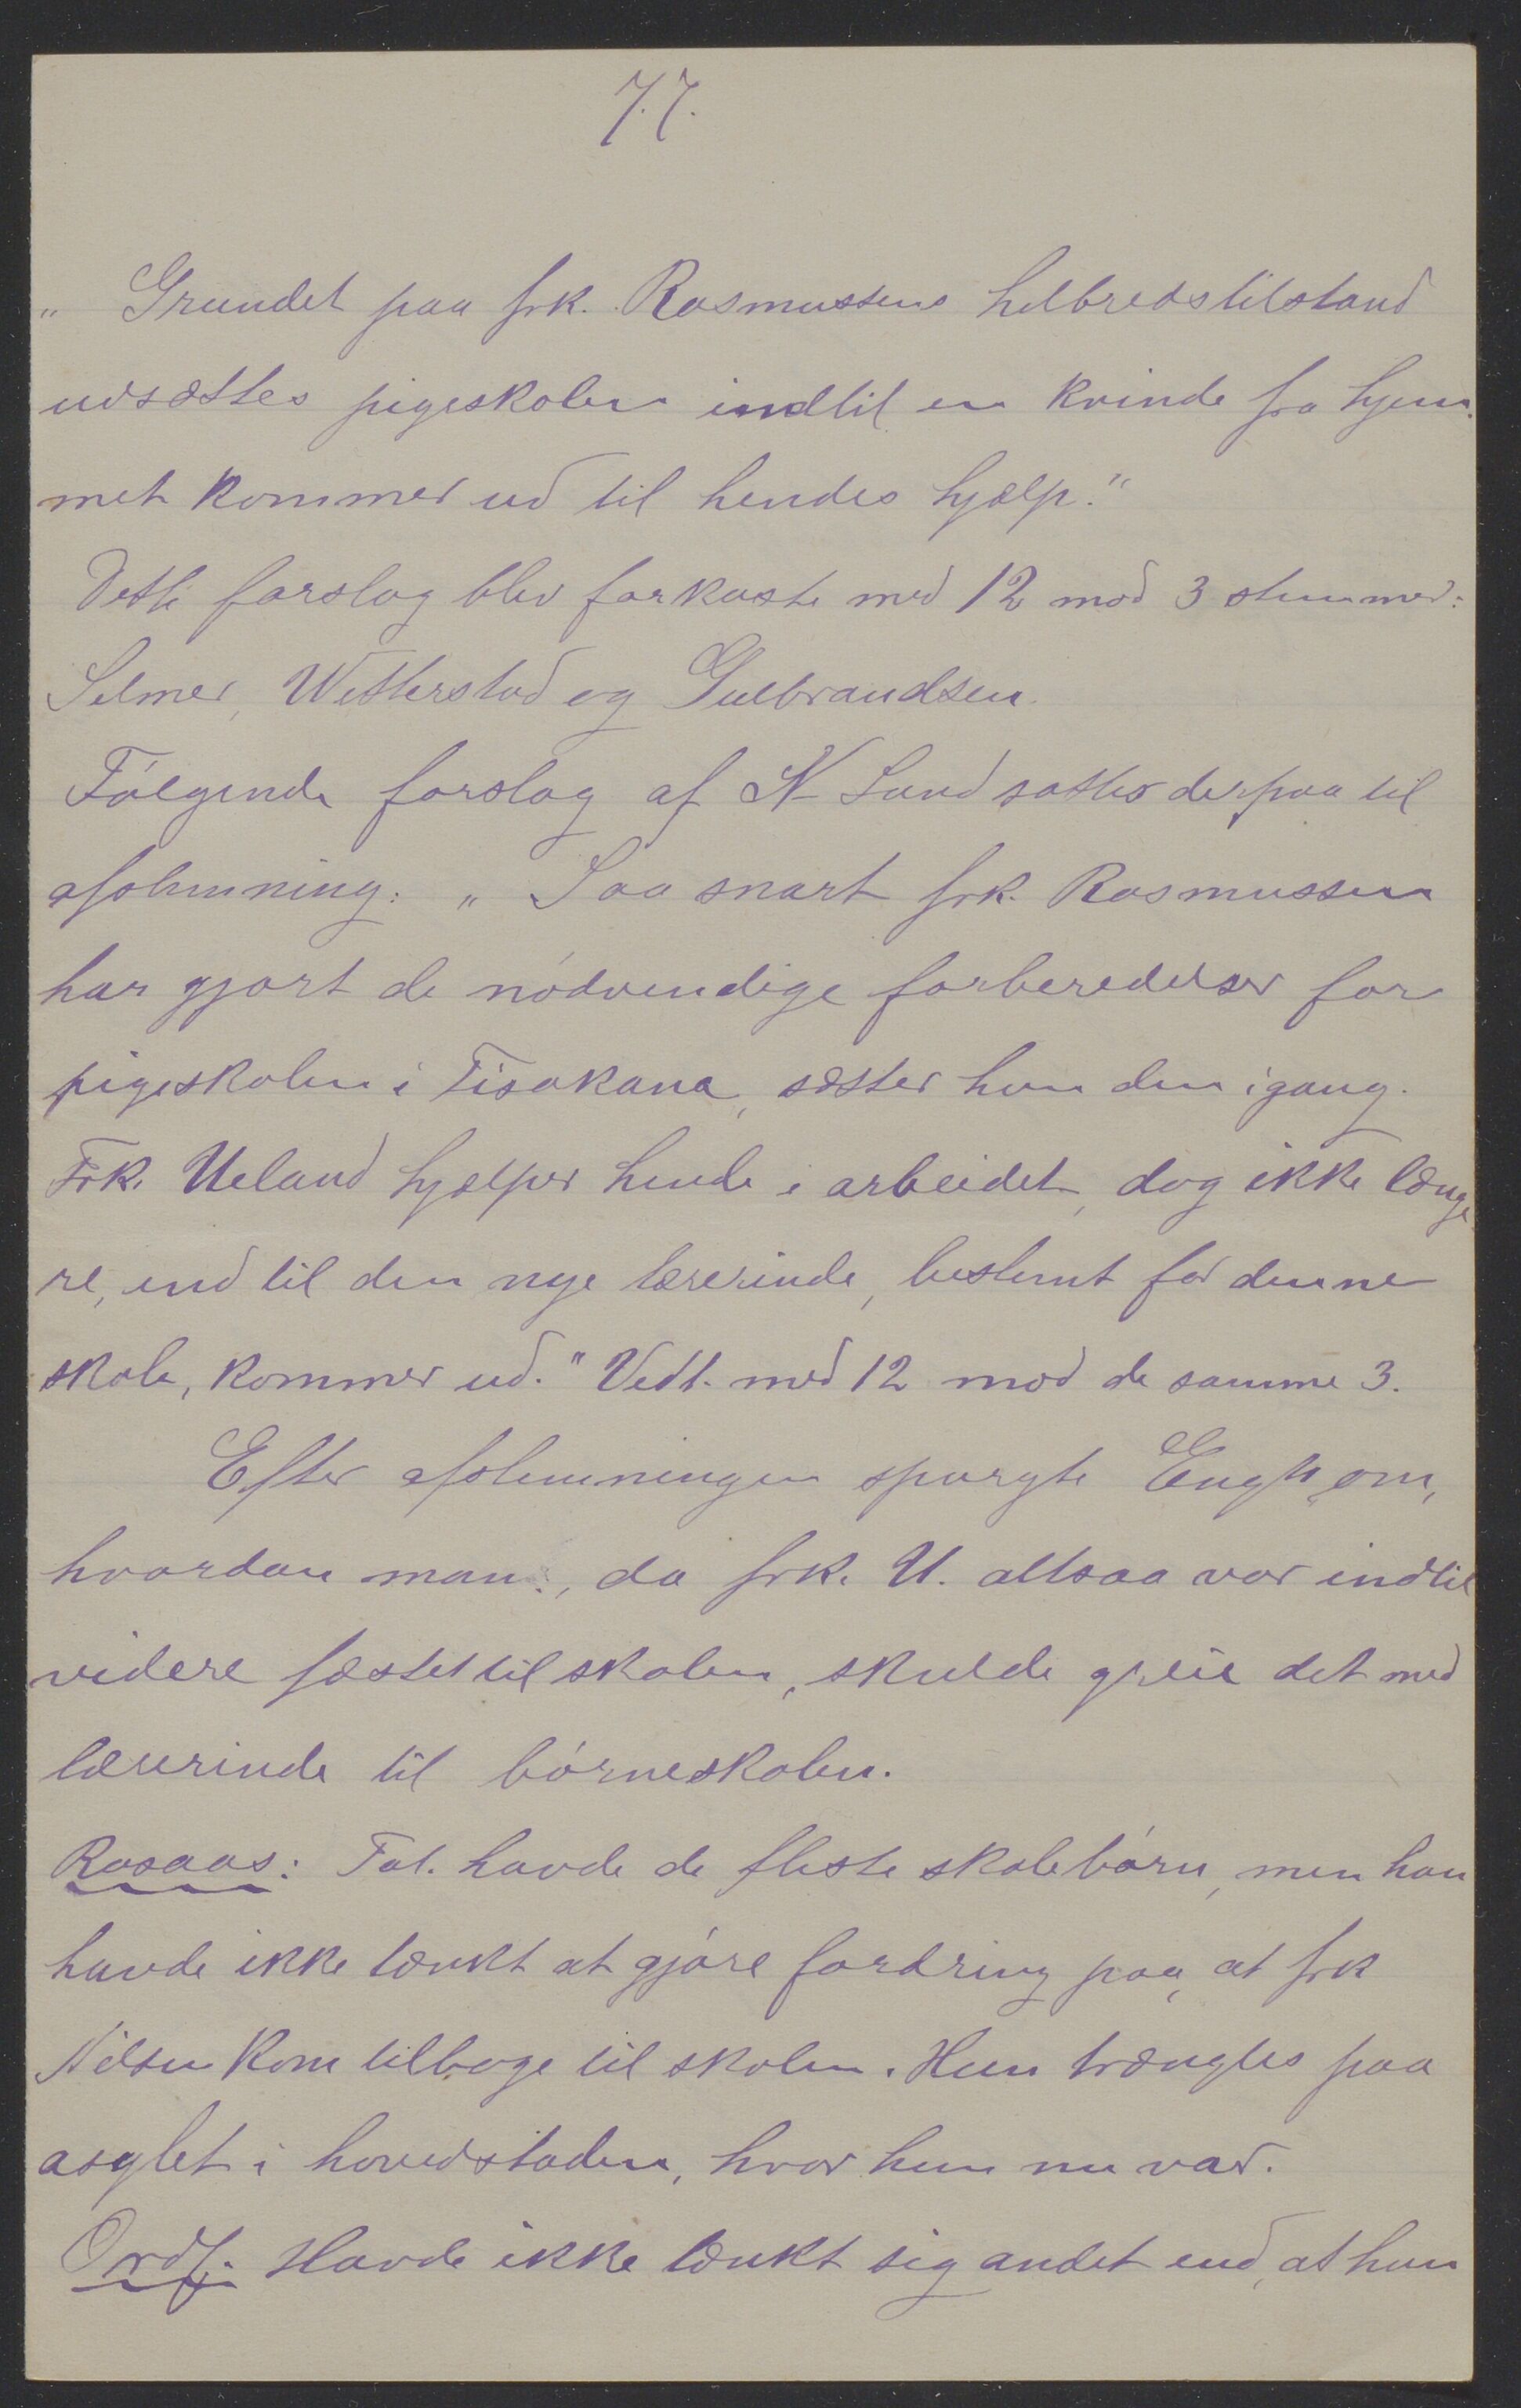 77.
„ Grundet paa frk. Rasmussens helbredstilstand
udsættes pigeskolen indtil en kvinde fra hjem-
met kommer ud til hendes hjælp."
Dette forslag blev forkastet med 12 mod 3 stemmer:
Selmer, Wetterstad og Gulbrandsen.
Følgende forslag af N. Land sattes derpaa til
afstemning: „ Saa snart frk. Rasmussen
har gjort de nødvendige forberedelser for
pigeskolen i Tisakana, sætter hun den igang.
Frk. Ueland hjælper hende i arbeidet, dog ikke længe
re, end til den nye lærerinde, bestemt for denne
skole, kommer ud." Vedt. med 12 mod de samme 3.
Efter afstemningen spurgte Engh, om,
hvordan man, da frk. U. altsaa var indtil
videre fæstet til skolen, skulde greie det med
lærerinde til børneskolen.
Rosaas: Tal. havde de fleste skolebørn, men han
havde ikke tænkt at gjøre fordring paa, at frk
Nilsen kom tilbage til skolen. Hun trængtes paa
asylet i hovedstaden, hvor hun nu var.
Ordf: Havde ikke tænkt sig andet end, at hun